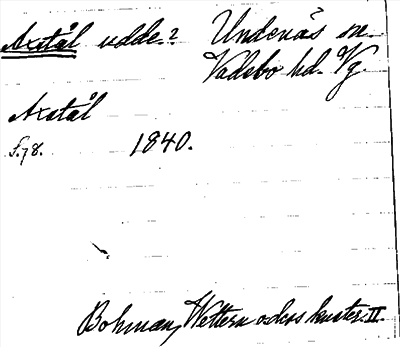 Axstål udde? Undenäs sn.
Vadsbo hd. Vg.
Axstål
s. 78. 1840.
Bohman, Wettern o. dess kuster. II.